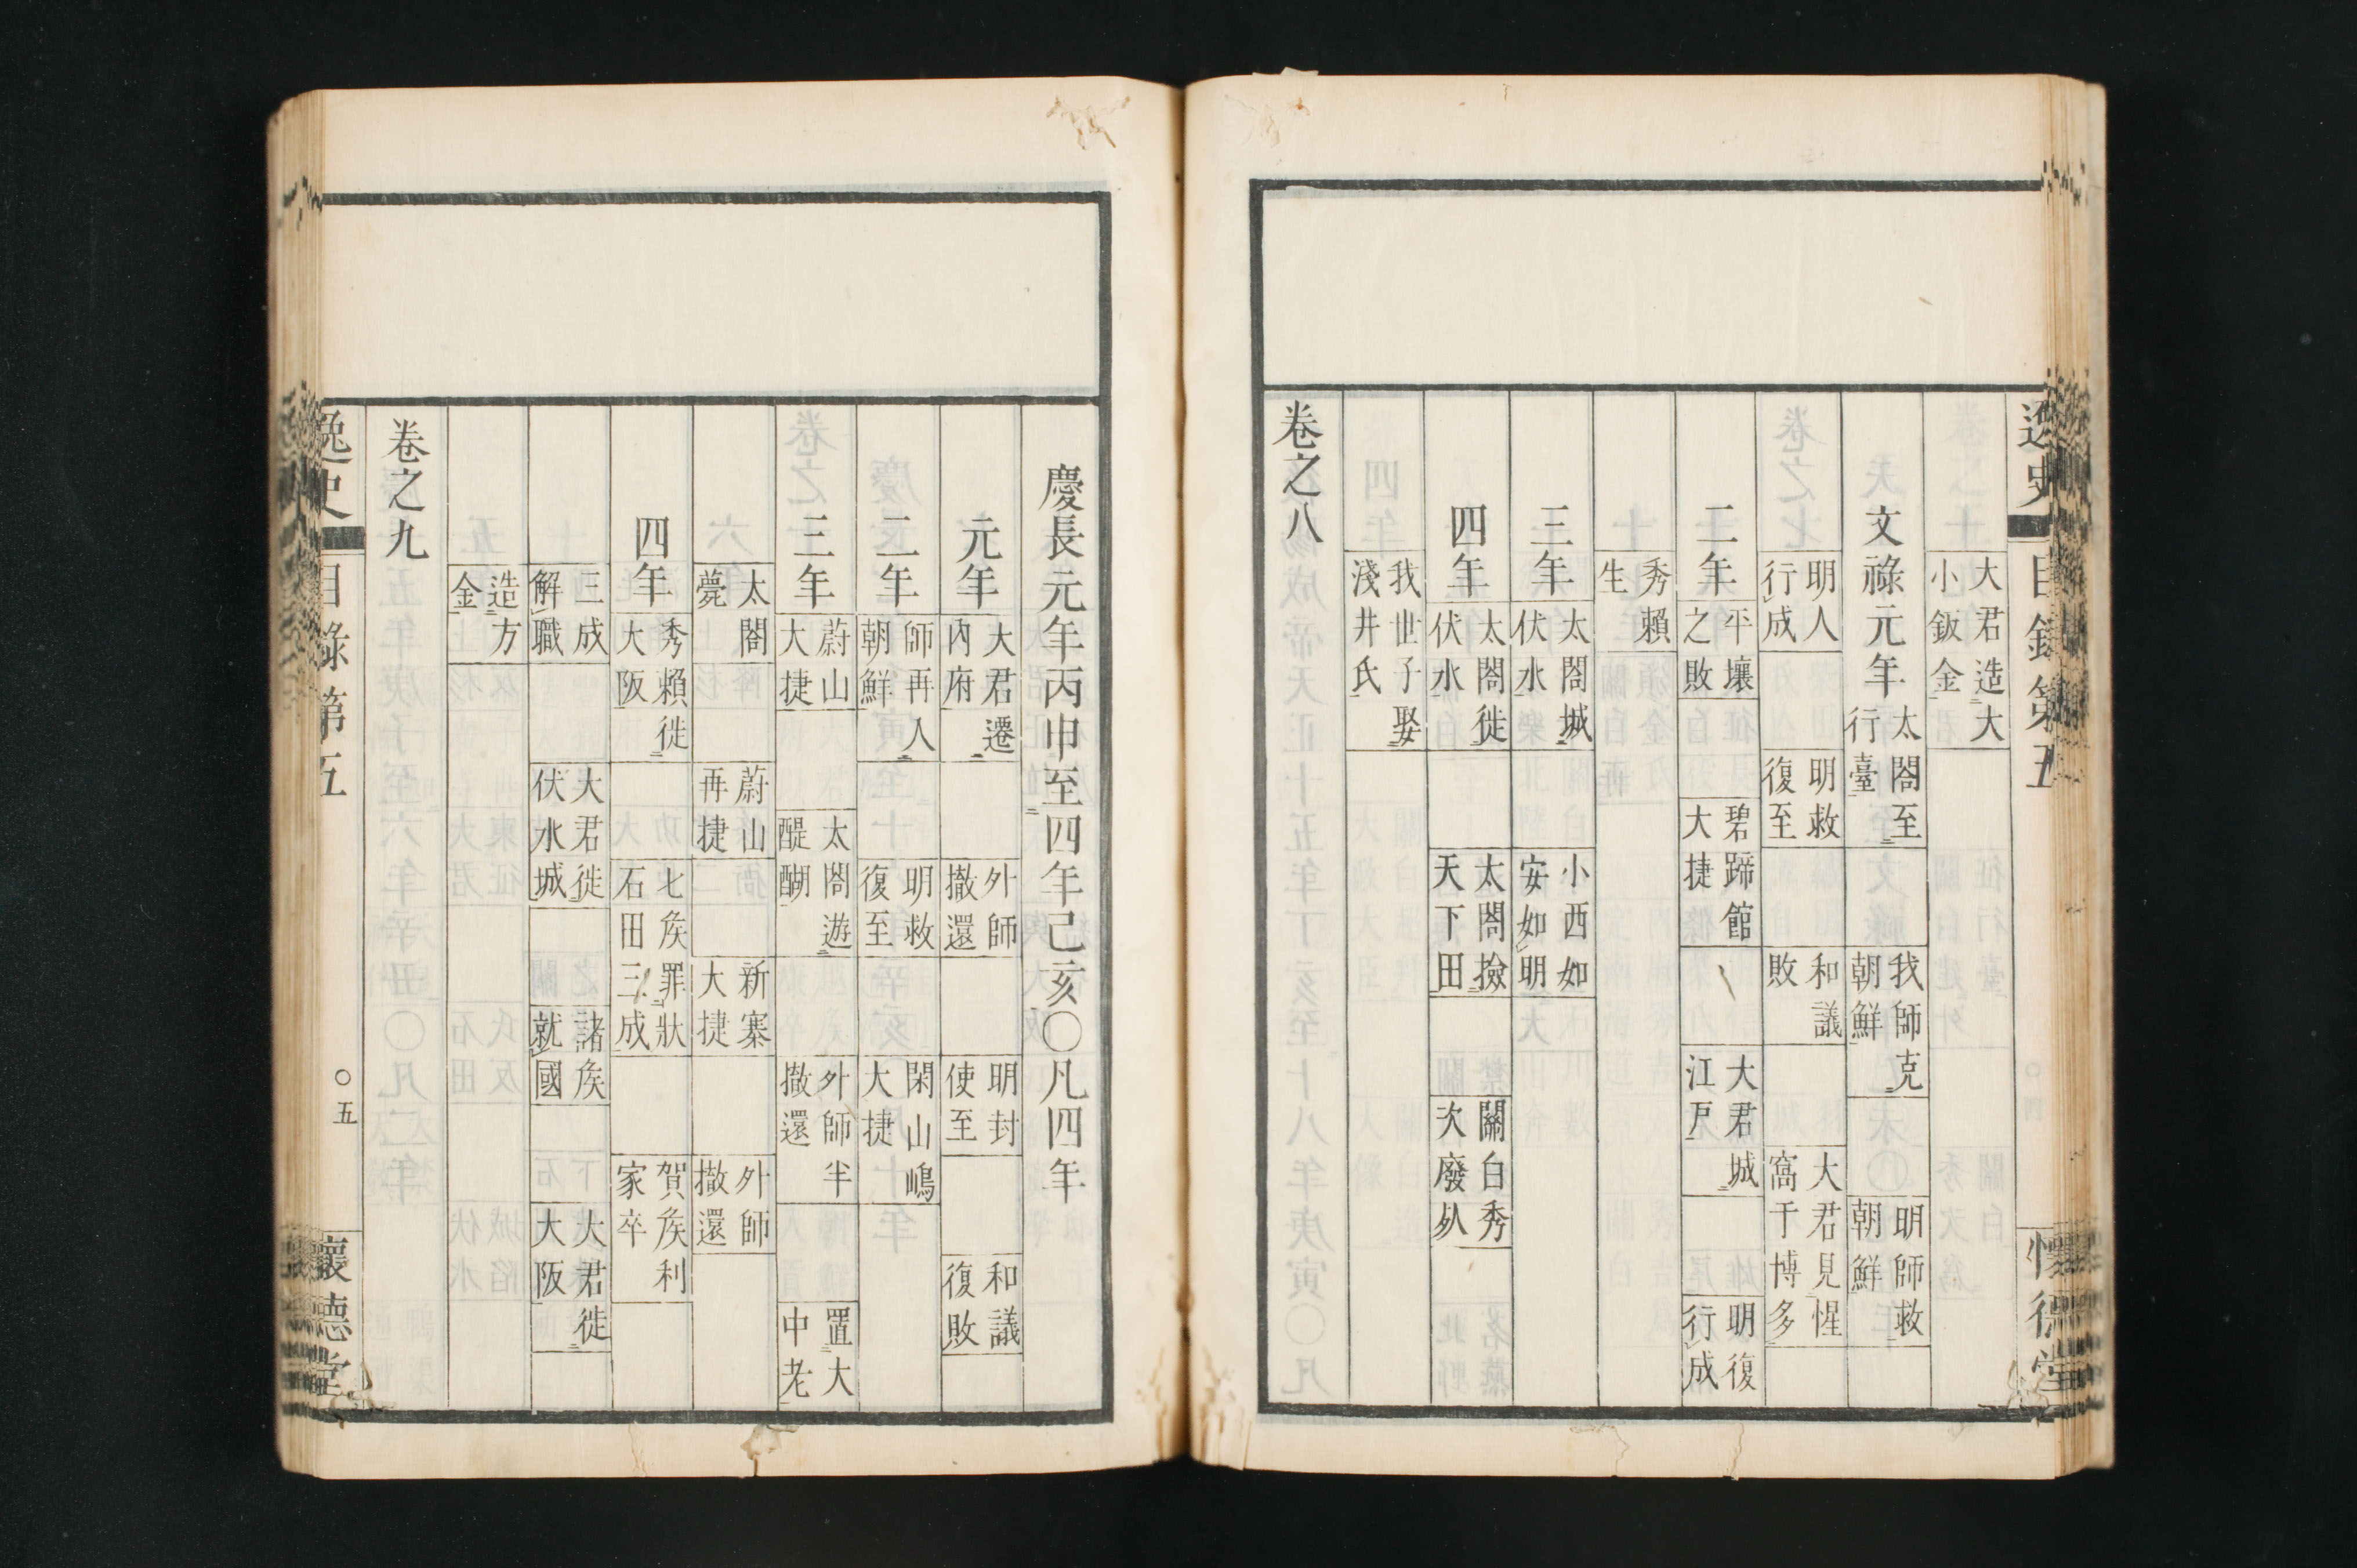 逸史 目錄第五 懷德堂
大君造大小鈑金
文祿元年 太閤至行臺 我師克朝鮮 明師救朝鮮
明人行成 明救復至 和議敗 大君見惺窩于博多
二年 平壤之敗 碧蹄館大捷 大君城江戸 明復行成
秀賴生
三年 太閤城伏水 小西如安如明
四年 太閤徙伏水 太閤撿天下田 關白秀次廢死
我世子娶淺井氏
卷之八
慶長元年丙申至四年己亥〇凡四年
元年 大君遷內府 外師撤還 明封使至 和議復敗
二年 師再入朝鮮 明救復至 閑山嶋大捷
三年 蔚山大捷 太閤遊醍醐 外師半撤還 置大中老
太閤薨 蔚山再捷 新寨大捷 外師撤還
四年 秀賴徙大阪 七矦罪狀石田三成 賀矦利家卒
三成解職 大君徙伏水城 諸矦就國 大君徙大阪
造方金
卷之九
逸史 目錄第五 〇五 懷德堂